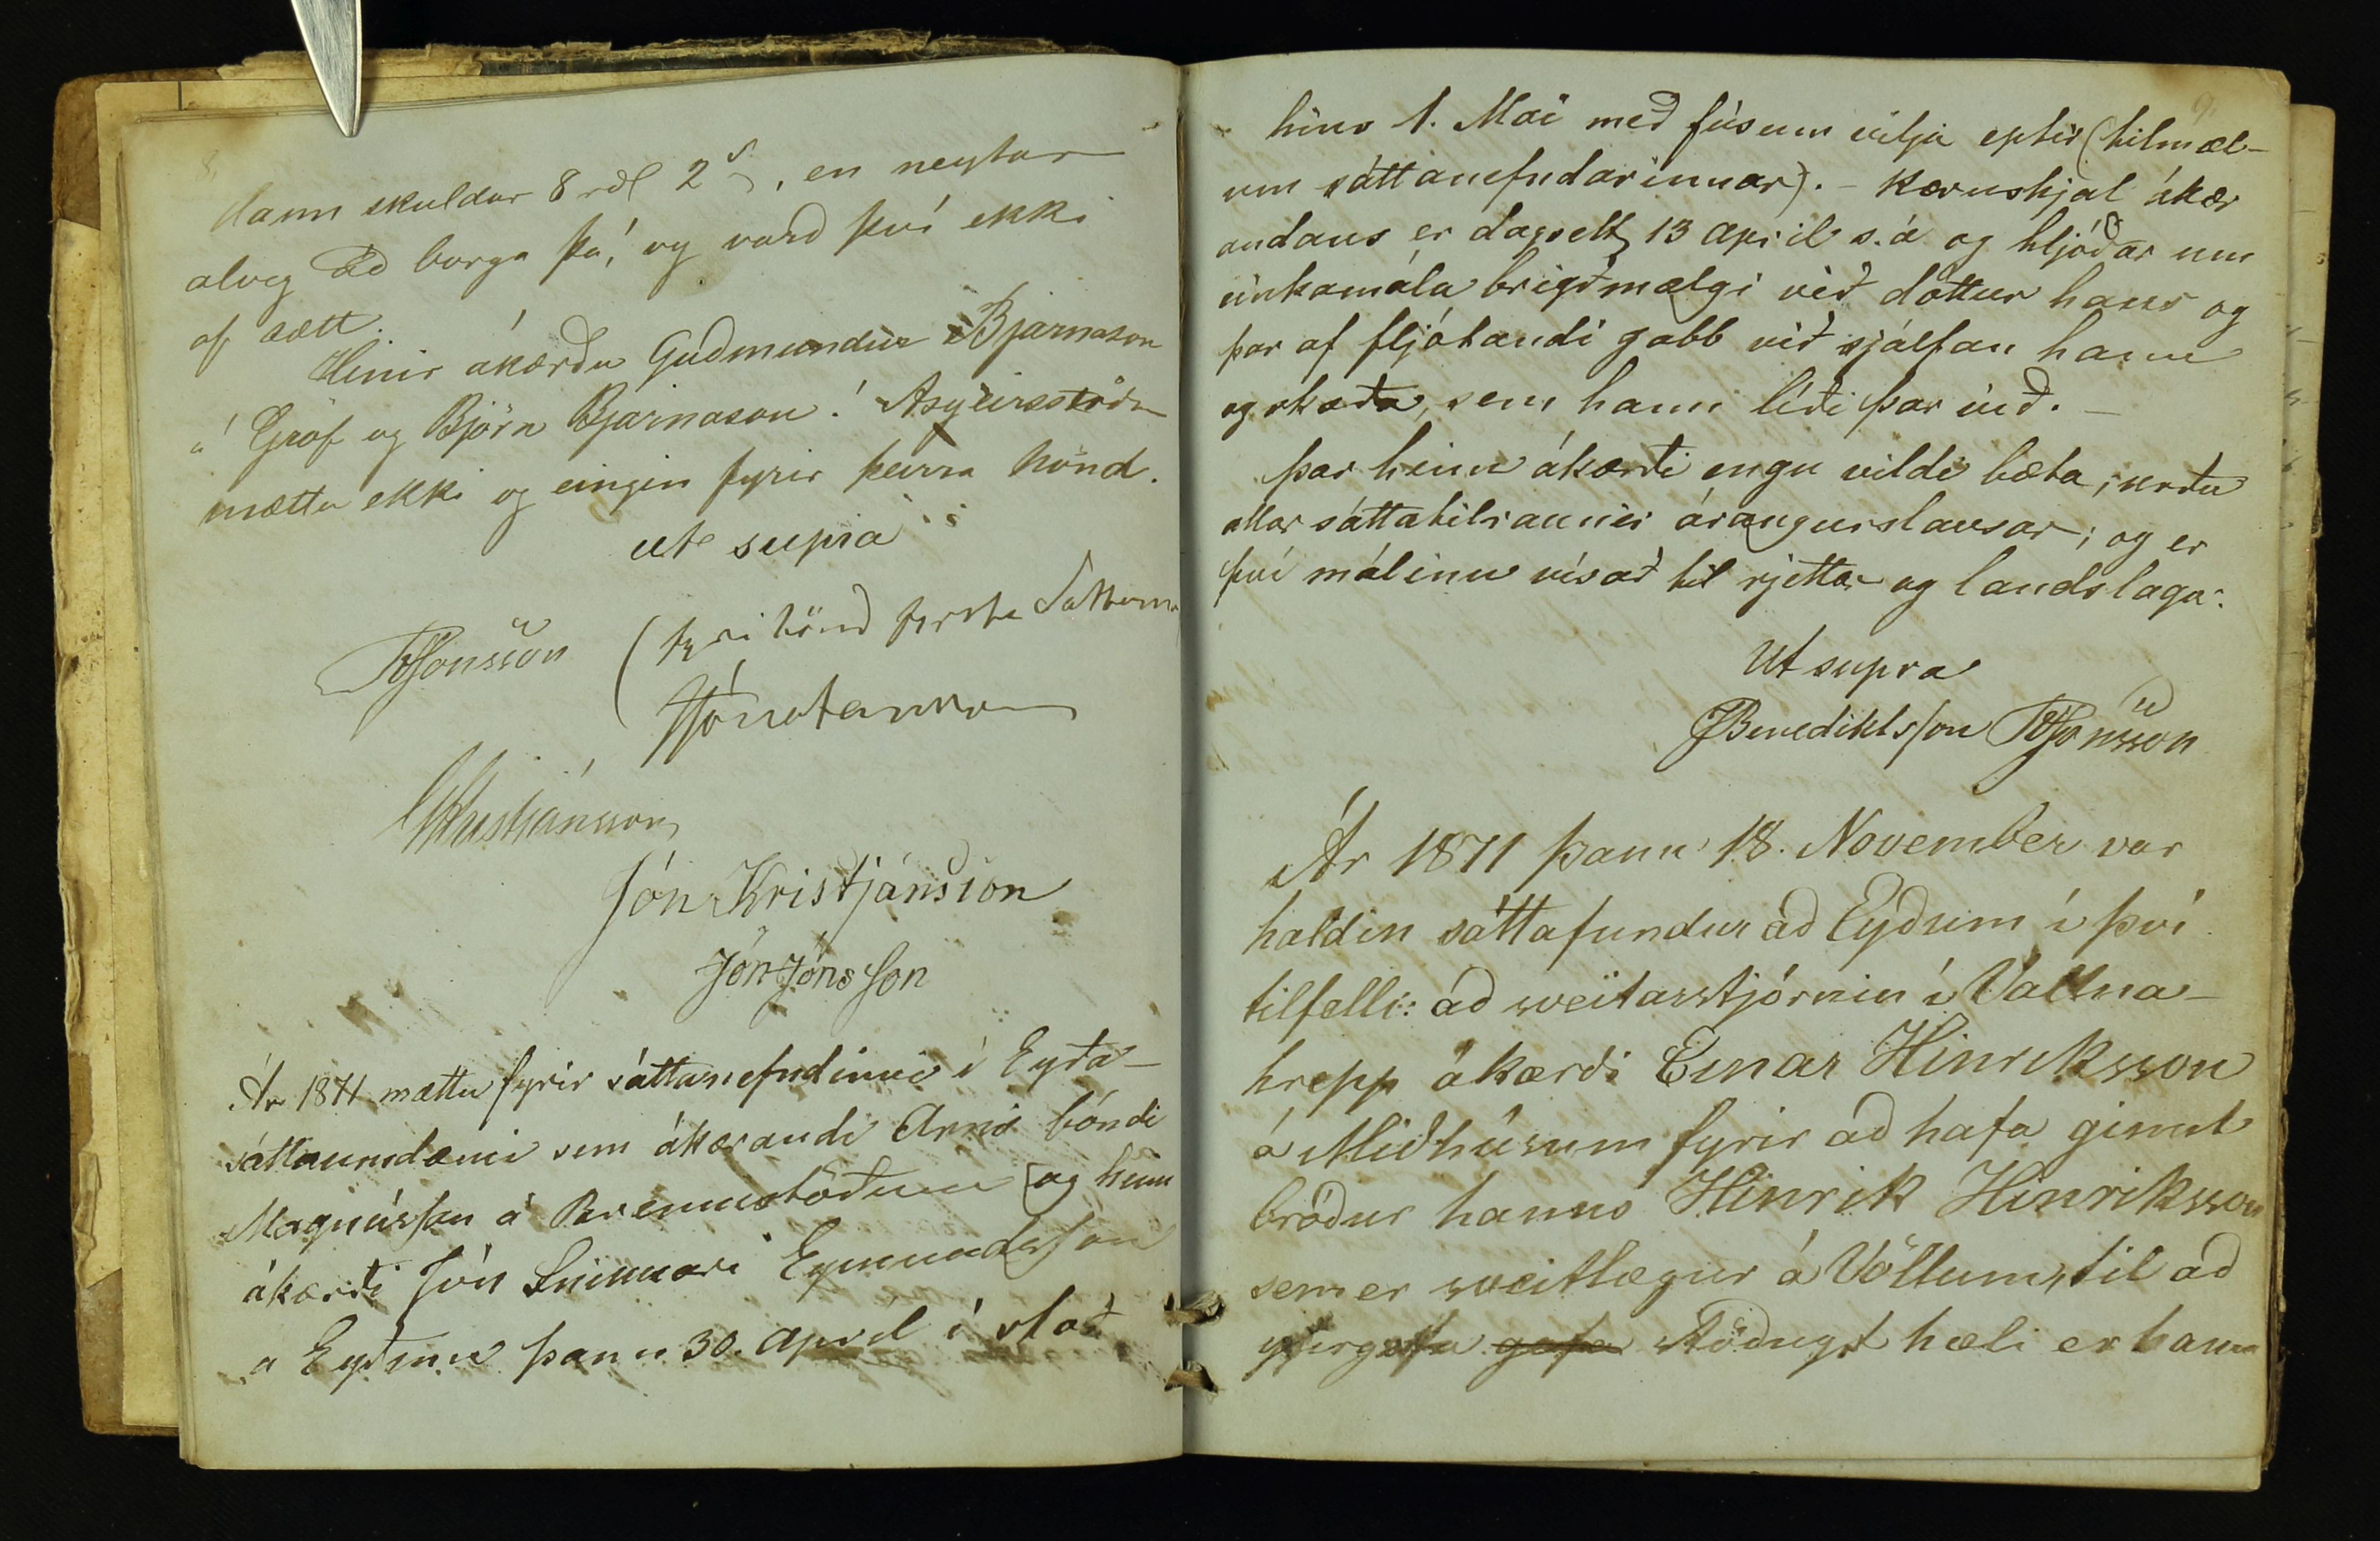 8.
dann skuldar 8 rdl 2 s, en neytar
alveg að borga þá, og varð því ekki
af sætt.
Hinir ákærðu Guðmundur Bjarnason
á Gröf og Björn Bjarnason á Asgeirsstöðu
mættu ekki og eingin fyrir þeirra hönd.
ut supra
BJónsson (fyri hönd fyrsta
JJónatansson
Kristjánsson
Jón Kristjánsson
Jón Jónsson
Ár 1871 mættu fyrir sáttanefndinni í Eyða-
sáttaumdæmi sem ákærandi Arni bóndi
Magnússon á Brennistöðum og hinn
ákærði Jón Snikkari Eymundsson
a Eyðum þann 30. apríl í stað
9.
hins 1. Mai með fúsum vilja eptir (tilmæl-
um sáttanefndarinnar). - Kæruskjal ákær
andans er dagsett 13 april s.á og hljóðar um
einkamála brigðmælgi við dóttur hans og
þar af fljótandi gabb við sjálfan hann
og skaða, sem hann líði þar við. -
þar hinn ákærði engu vildi bæta, urðu
allar sáttatilraunir árangurslausar; og er
því málinu vísað til rjettar og landslaga.
Ut supra
JBenediktsson BJónsson
Ár 1871 þann 18. November var
haldin sáttafundur að Eyðum í því
tilfelli: að sveitarstjórnin í Vallna-
hrepp ákærði Einar Hinriksson
á Miðhúsum fyrir að hafa ginnt
bróður hanns Hinrik Hinriksson
sem er sveitlægur á Völlum, til að
yfirgefa gefa stöðugt hæli er hann